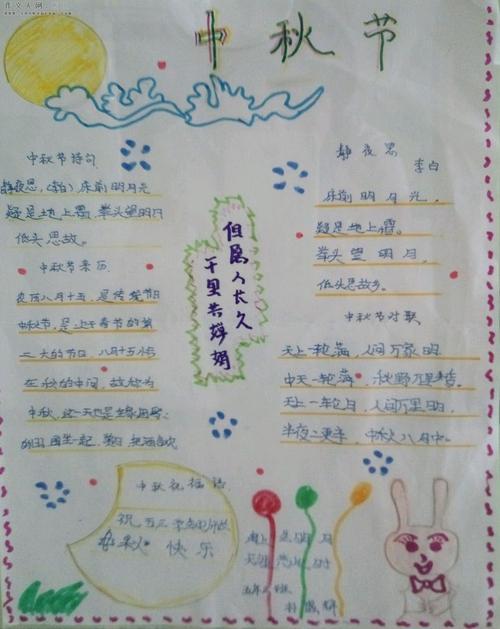 作文人网
中秋节
中秋节诗句
静夜思,(李白)床前明月光
疑是地上霜,举头望明月
低头思故。
中秋节来历
农历八月十五,是传统节日
中秋节,是止于春节的第
二大的节日 八月十五恰
在秋的中间,故称为
中秋,这一天也是
但愿人长久
千里共婵娟
静夜思
李白
床前明月光,
疑是地上霜。
举头望明月,
低头思故乡。
中秋节对联
天上一轮满,人间万家明
中天一轮满,秋野万里香。
天上一轮月,人间万里明,
半夜二更半,中秋八月中。
中秋祝福语
祝五三
中秋快乐